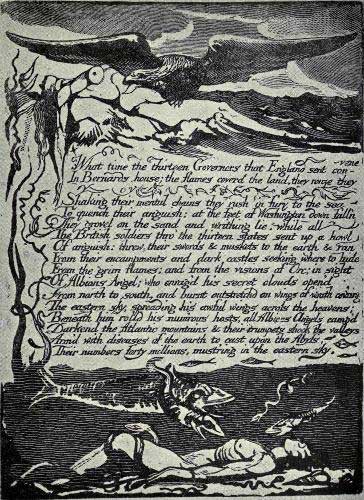 -vene
What time the thirteen Governors that England sent con-
In Bernards house; the flames coverd the land, they rouze they cry
Shaking their mental chains they rush in fury to the sea
To quench their anguish; at the feet of Washington down falln
They grovel on the sand and writhing lie, while all
The British soldiers thro' the thirteen states sent up a howl
Of anguish: threw their swords & muskets to the earth & ran
From their encampments and dark castles seeking where to hide
From the grim flames; and from the visions of Orc; in sight
Of Albions Angel; who enrag'd his secret clouds open'd
From north to south, and burst outstretchd on wings of wrath cov'ring
The eastern sky, spreading his awful wings across the heavens;
Beneath him rolld his num'rous hosts, all Albions Angels camp'd
Darkend the Atlantic mountains & their trumpets shook the valleys
Armd with diseases of the earth to cast upon the Abyss,
Their numbers forty millions, must'ring in the eastern sky.